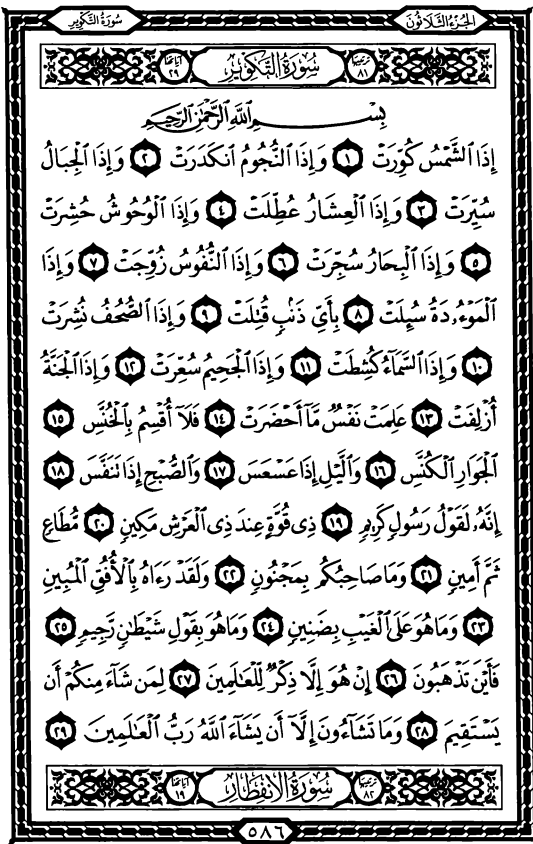 سُورَةُ التَّكْوِيرِ
الجُزْءُ الثَّلَاثُونَ
تَرْتِيبُهَا ٨١ سُورَةُ التَّكْوِيرِ آيَاتُهَا ٢٩
بِسْمِ ٱللَّهِ ٱلرَّحْمَٰنِ ٱلرَّحِيمِ
إِذَا ٱلشَّمْسُ كُوِّرَتْ ١ وَإِذَا ٱلنُّجُومُ ٱنكَدَرَتْ ٢ وَإِذَا ٱلْجِبَالُ
سُيِّرَتْ ٣ وَإِذَا ٱلْعِشَارُ عُطِّلَتْ ٤ وَإِذَا ٱلْوُحُوشُ حُشِرَتْ
٥ وَإِذَا ٱلْبِحَارُ سُجِّرَتْ ٦ وَإِذَا ٱلنُّفُوسُ زُوِّجَتْ ٧ وَإِذَا
ٱلْمَوْءُۥدَةُ سُئِلَتْ ٨ بِأَىِّ ذَنۢبٍ قُتِلَتْ ٩ وَإِذَا ٱلصُّحُفُ نُشِرَتْ
١٠ وَإِذَا ٱلسَّمَآءُ كُشِطَتْ ١١ وَإِذَا ٱلْجَحِيمُ سُعِّرَتْ ١٢ وَإِذَا ٱلْجَنَّةُ
أُزْلِفَتْ ١٣ عَلِمَتْ نَفْسٌ مَّآ أَحْضَرَتْ ١٤ فَلَآ أُقْسِمُ بِٱلْخُنَّسِ ١٥
ٱلْجَوَارِ ٱلْكُنَّسِ ١٦ وَٱلَّيْلِ إِذَا عَسْعَسَ ١٧ وَٱلصُّبْحِ إِذَا تَنَفَّسَ ١٨
إِنَّهُۥ لَقَوْلُ رَسُولٍ كَرِيمٍ ١٩ ذِى قُوَّةٍ عِندَ ذِى ٱلْعَرْشِ مَكِينٍ ٢٠ مُّطَاعٍ
ثَمَّ أَمِينٍ ٢١ وَمَا صَاحِبُكُم بِمَجْنُونٍ ٢٢ وَلَقَدْ رَءَاهُ بِٱلْأُفُقِ ٱلْمُبِينِ
٢٣ وَمَا هُوَ عَلَى ٱلْغَيْبِ بِضَنِينٍ ٢٤ وَمَا هُوَ بِقَوْلِ شَيْطَٰنٍ رَّجِيمٍ ٢٥
فَأَيْنَ تَذْهَبُونَ ٢٦ إِنْ هُوَ إِلَّا ذِكْرٌ لِّلْعَٰلَمِينَ ٢٧ لِمَن شَآءَ مِنكُمْ أَن
يَسْتَقِيمَ ٢٨ وَمَا تَشَآءُونَ إِلَّآ أَن يَشَآءَ ٱللَّهُ رَبُّ ٱلْعَٰلَمِينَ ٢٩
تَرْتِيبُهَا ٨٢ سُورَةُ الِانْفِطَارِ آيَاتُهَا ١٩
٥٨٦